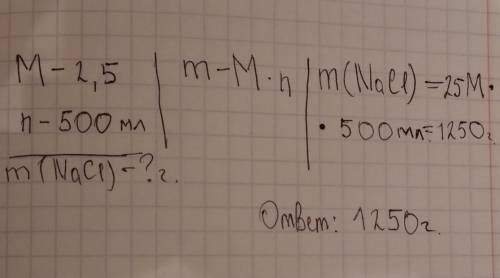 M - 2,5
n - 500 мл
m (NaCl) - ? г.
m - M · n
m (NaCl) = 25M ·
· 500 мл = 1250 г.
Ответ: 1250 г.